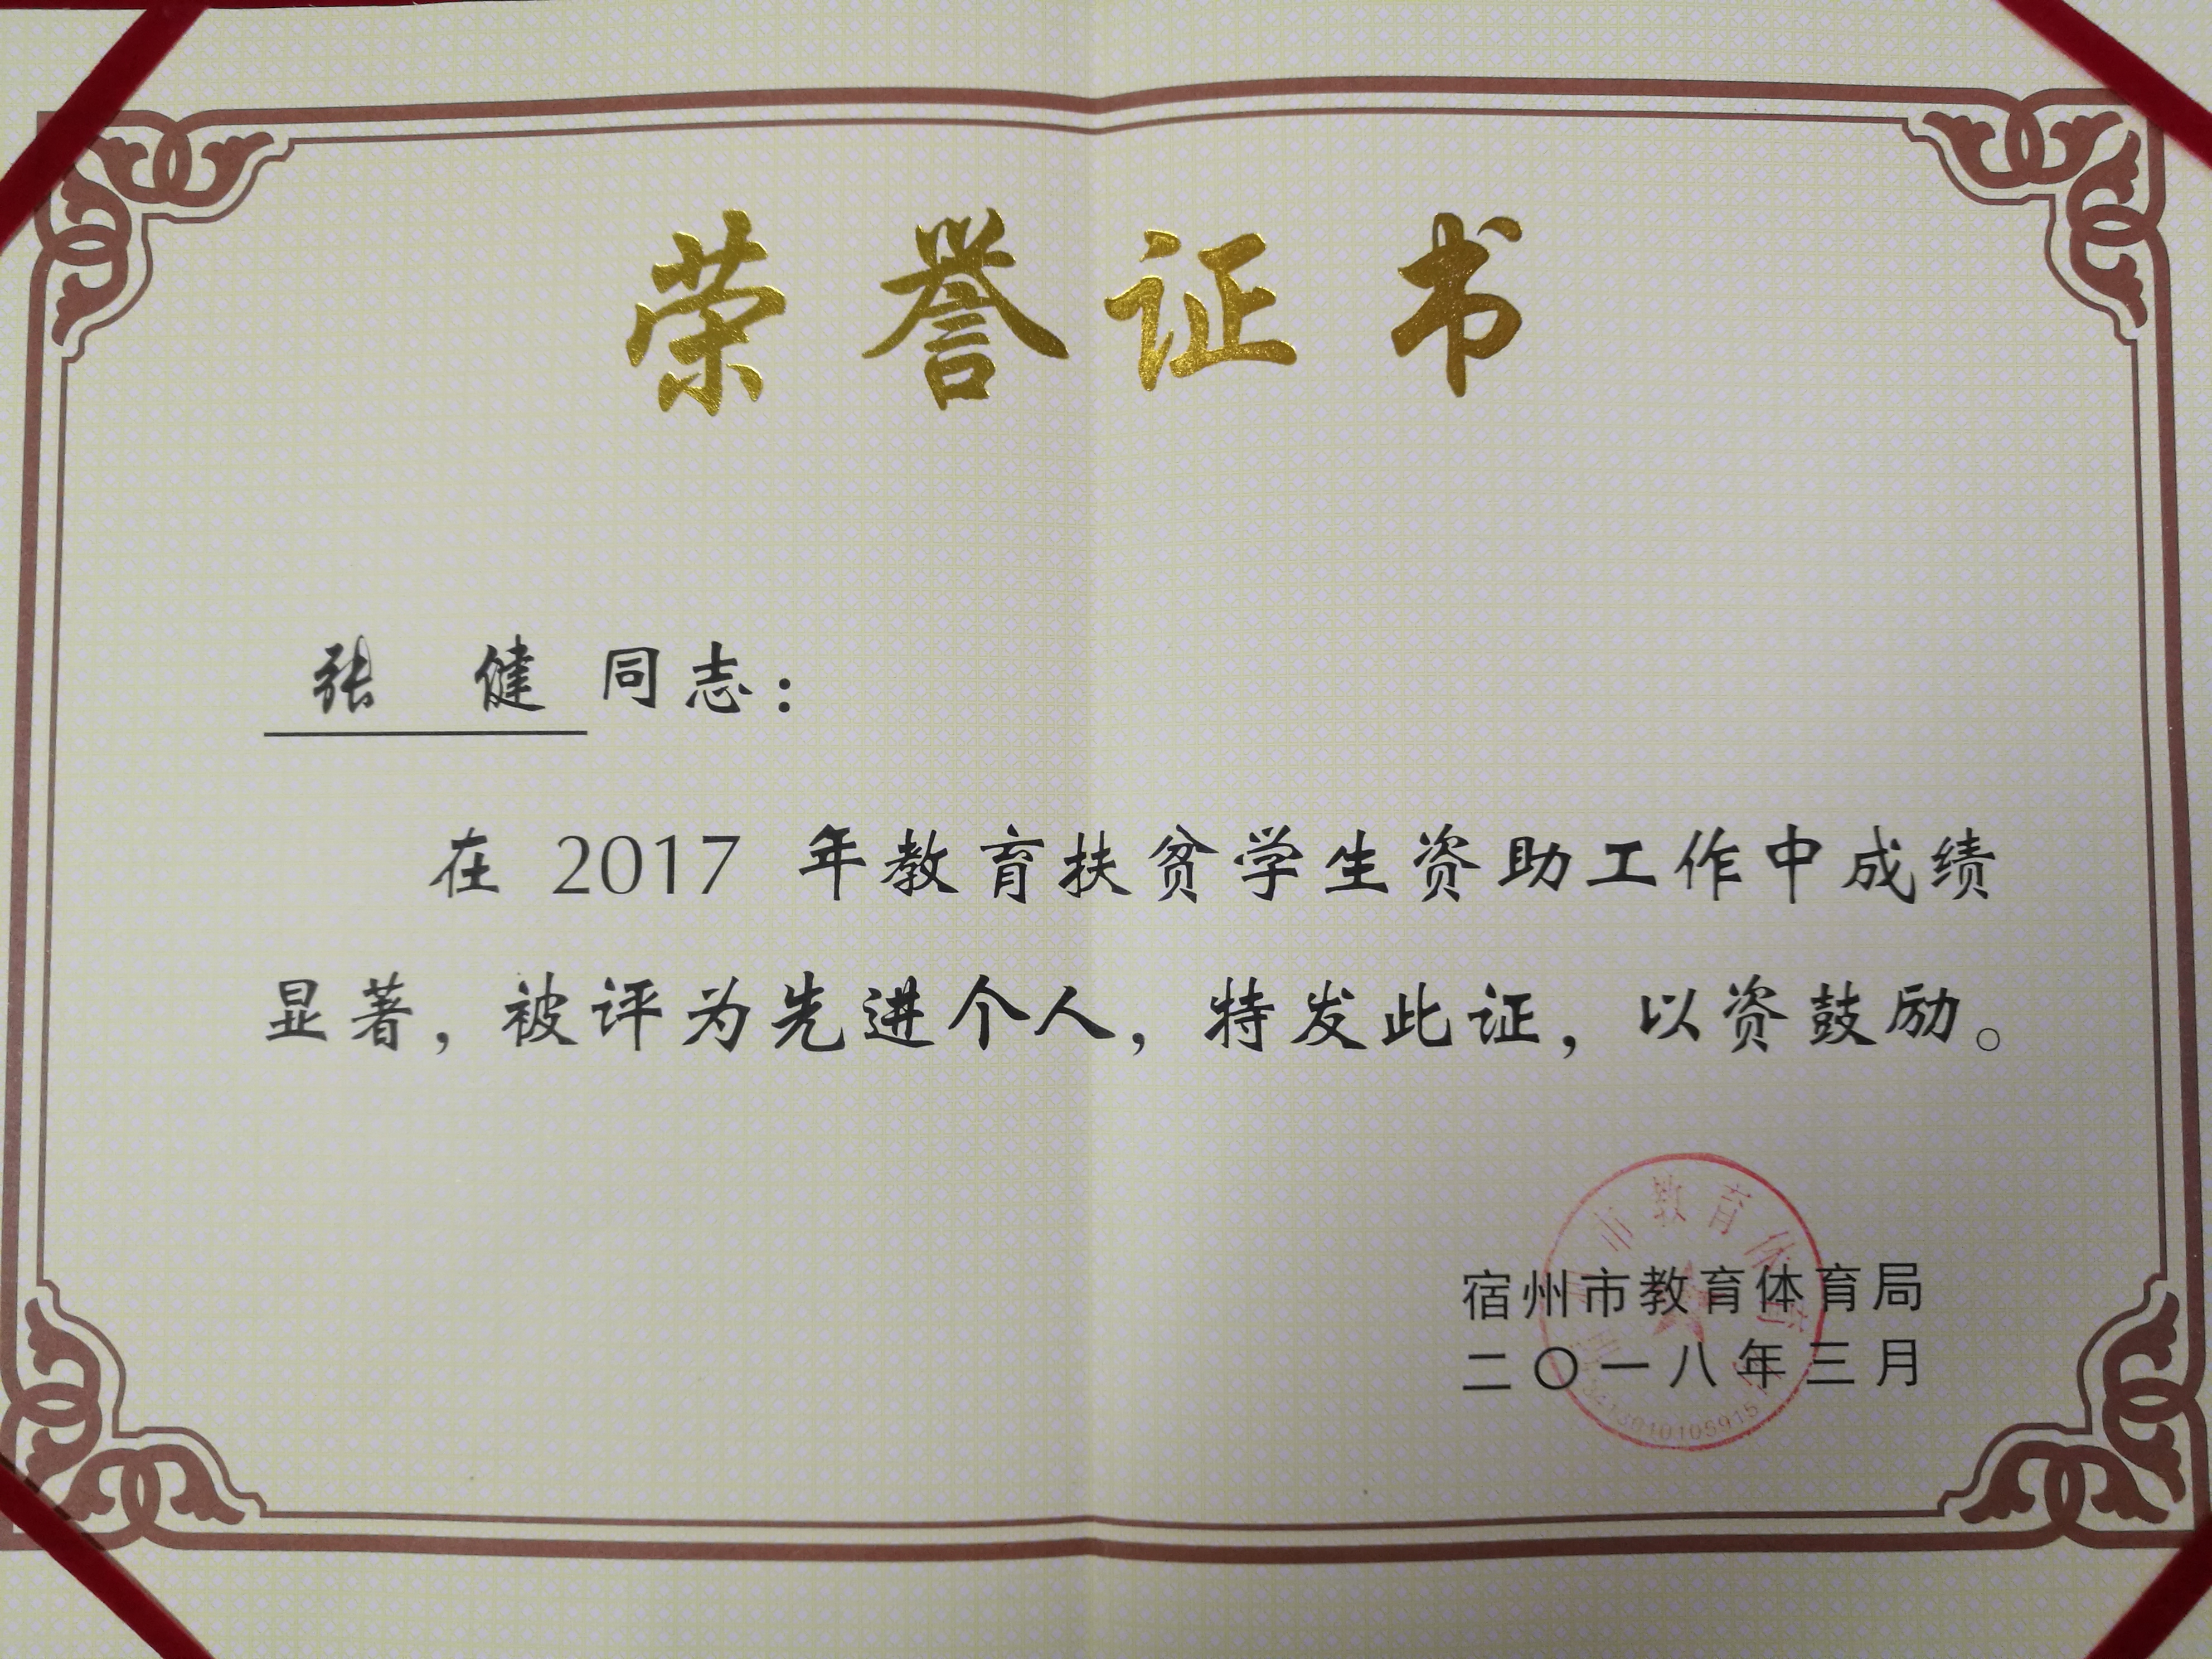 荣誉证书
张 健 同志：
在 2017 年教育扶贫学生资助工作中成绩
显著，被评为先进个人，特发此证，以资鼓励。
市教育体育
宿州市教育体育局
二〇一八年三月